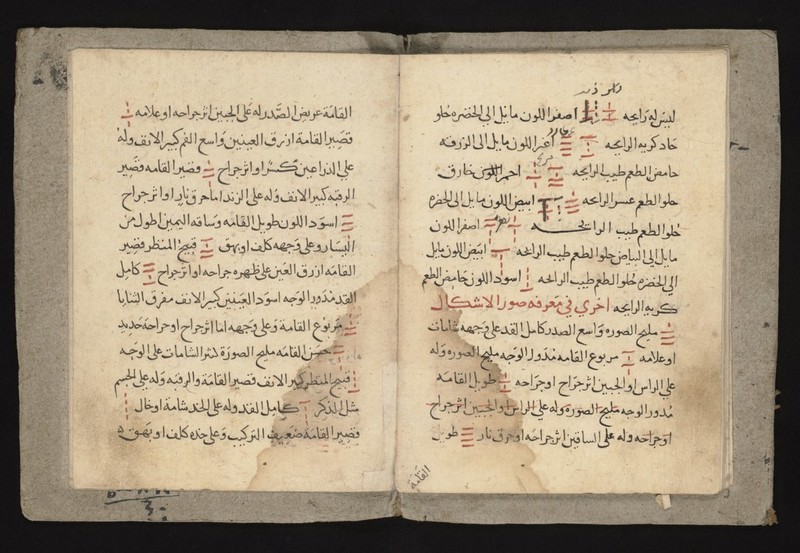 ليس له رايحه اصفر اللون مايل الى الخضره حلو
حاد كريه الرايحه اغبر اللون مايل الى الزرقه
حامض الطعم طيب الرايحه احمر اللون خارق
حلو الطعم عسر الرايحه ابيض اللون مايل الى الخضره
حلو الطعم طيب الرايحه اصفر اللون
مايل الى البياض حلو الطعم طيب الرايحه ابيض اللون مايل
الى الخضره حلو الطعم طيب الرايحه اسود اللون حامض الطعم
كريه الرايحه اخري في معرفه صور الاشكال
مليح الصوره واسع الصدر كامل القد على وجهه شامات
او علامه مربوع القامه مدور الوجه مليح الصوره وله
على الراس او الجبين اثر جراح او جراحه طويل القامه
مدور الوجه مليح الصوره وله على الراس والجبين اثر جراح
او جراحه وله على الساقين اثر جراحه او حرق نار طويل
القامة
القامة عريض الصدر له على الجبين اثر جراحه او علامه
قصير القامة ازرق العينين واسع الفم كبير الانف وله
على الذراعين كسر او اثر جراح قصير القامه قصير
الرقبه كبير الانف وله على الزند اما حرق نار او اثر جراح
اسود اللون طويل القامه وساقه اليمين اطول من
اليسار وعلى وجهه كلف او بهق قبيح المنظر قصير
القامه ازرق العين على ظهره جراحه او اثر جراح كامل
القد مدور الوجه اسود العينين كبير الانف مفرق الثنايا
مربوع القامة وعلى وجهه اما اثر جراح او جراحة حديد
حسن القامه مليح الصورة كثير الشامات على الوجه
قبيح المنظر كبير الانف قصير القامة والرقبه وله على الجسم
مثل الذكر كامل القد وله على الخد شامة او خال
قصير القامة ضعيف التركيب وعلى خده كلف او بهق